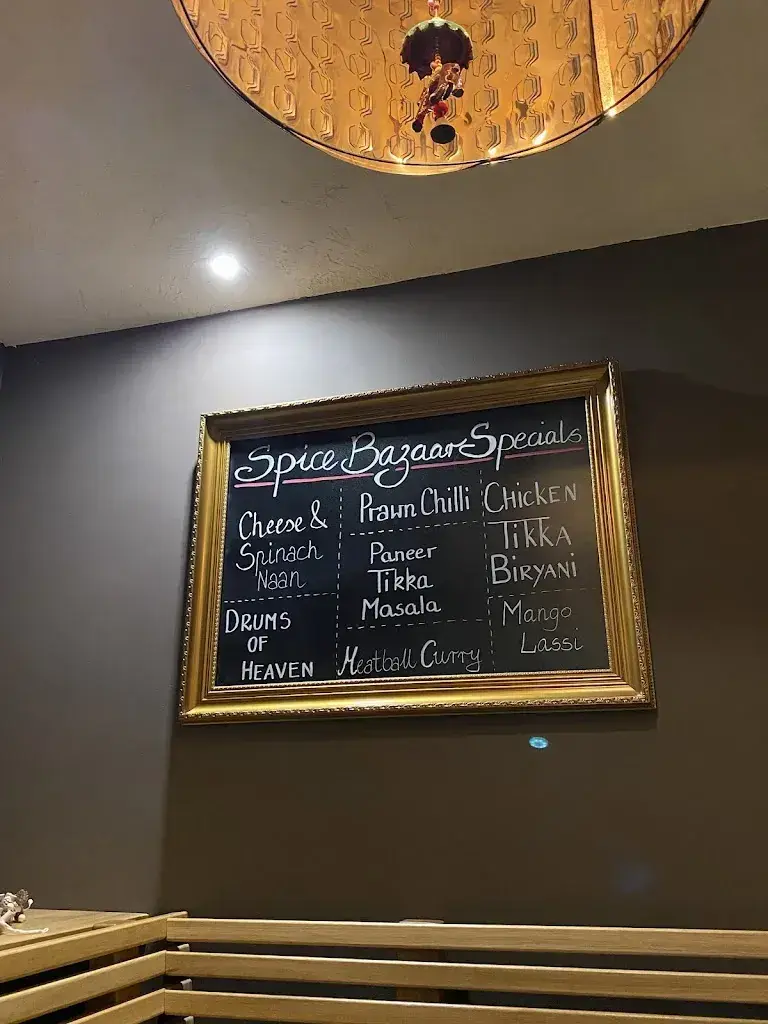 Spice Bazaar Specials
Cheese &
Spinach
Naan
DRUMS
OF
HEAVEN
Prawn Chilli
Paneer
Tikka
Masala
Meatball Curry
CHICKEN
TIKKA
BIRYANI
Mango
Lassi